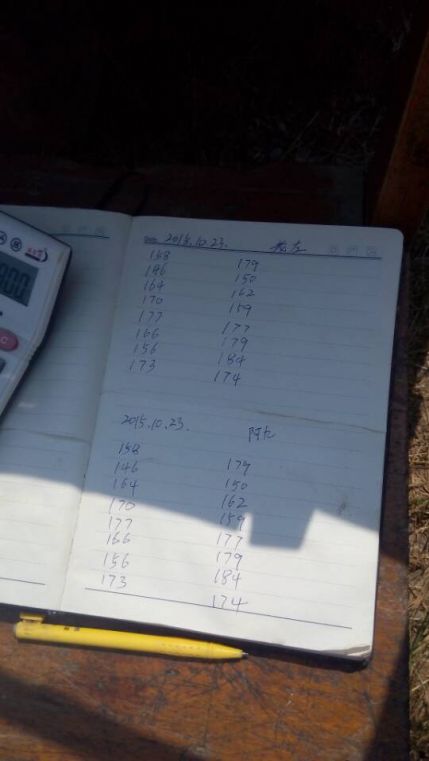 2015.10.23.
158
146 179
164 150
170 162
177 159
166 177
156 179
173 184
174
2015.10.23. 阿九
158
146 179
164 150
170 162
177 159
166 177
156 179
173 184
174